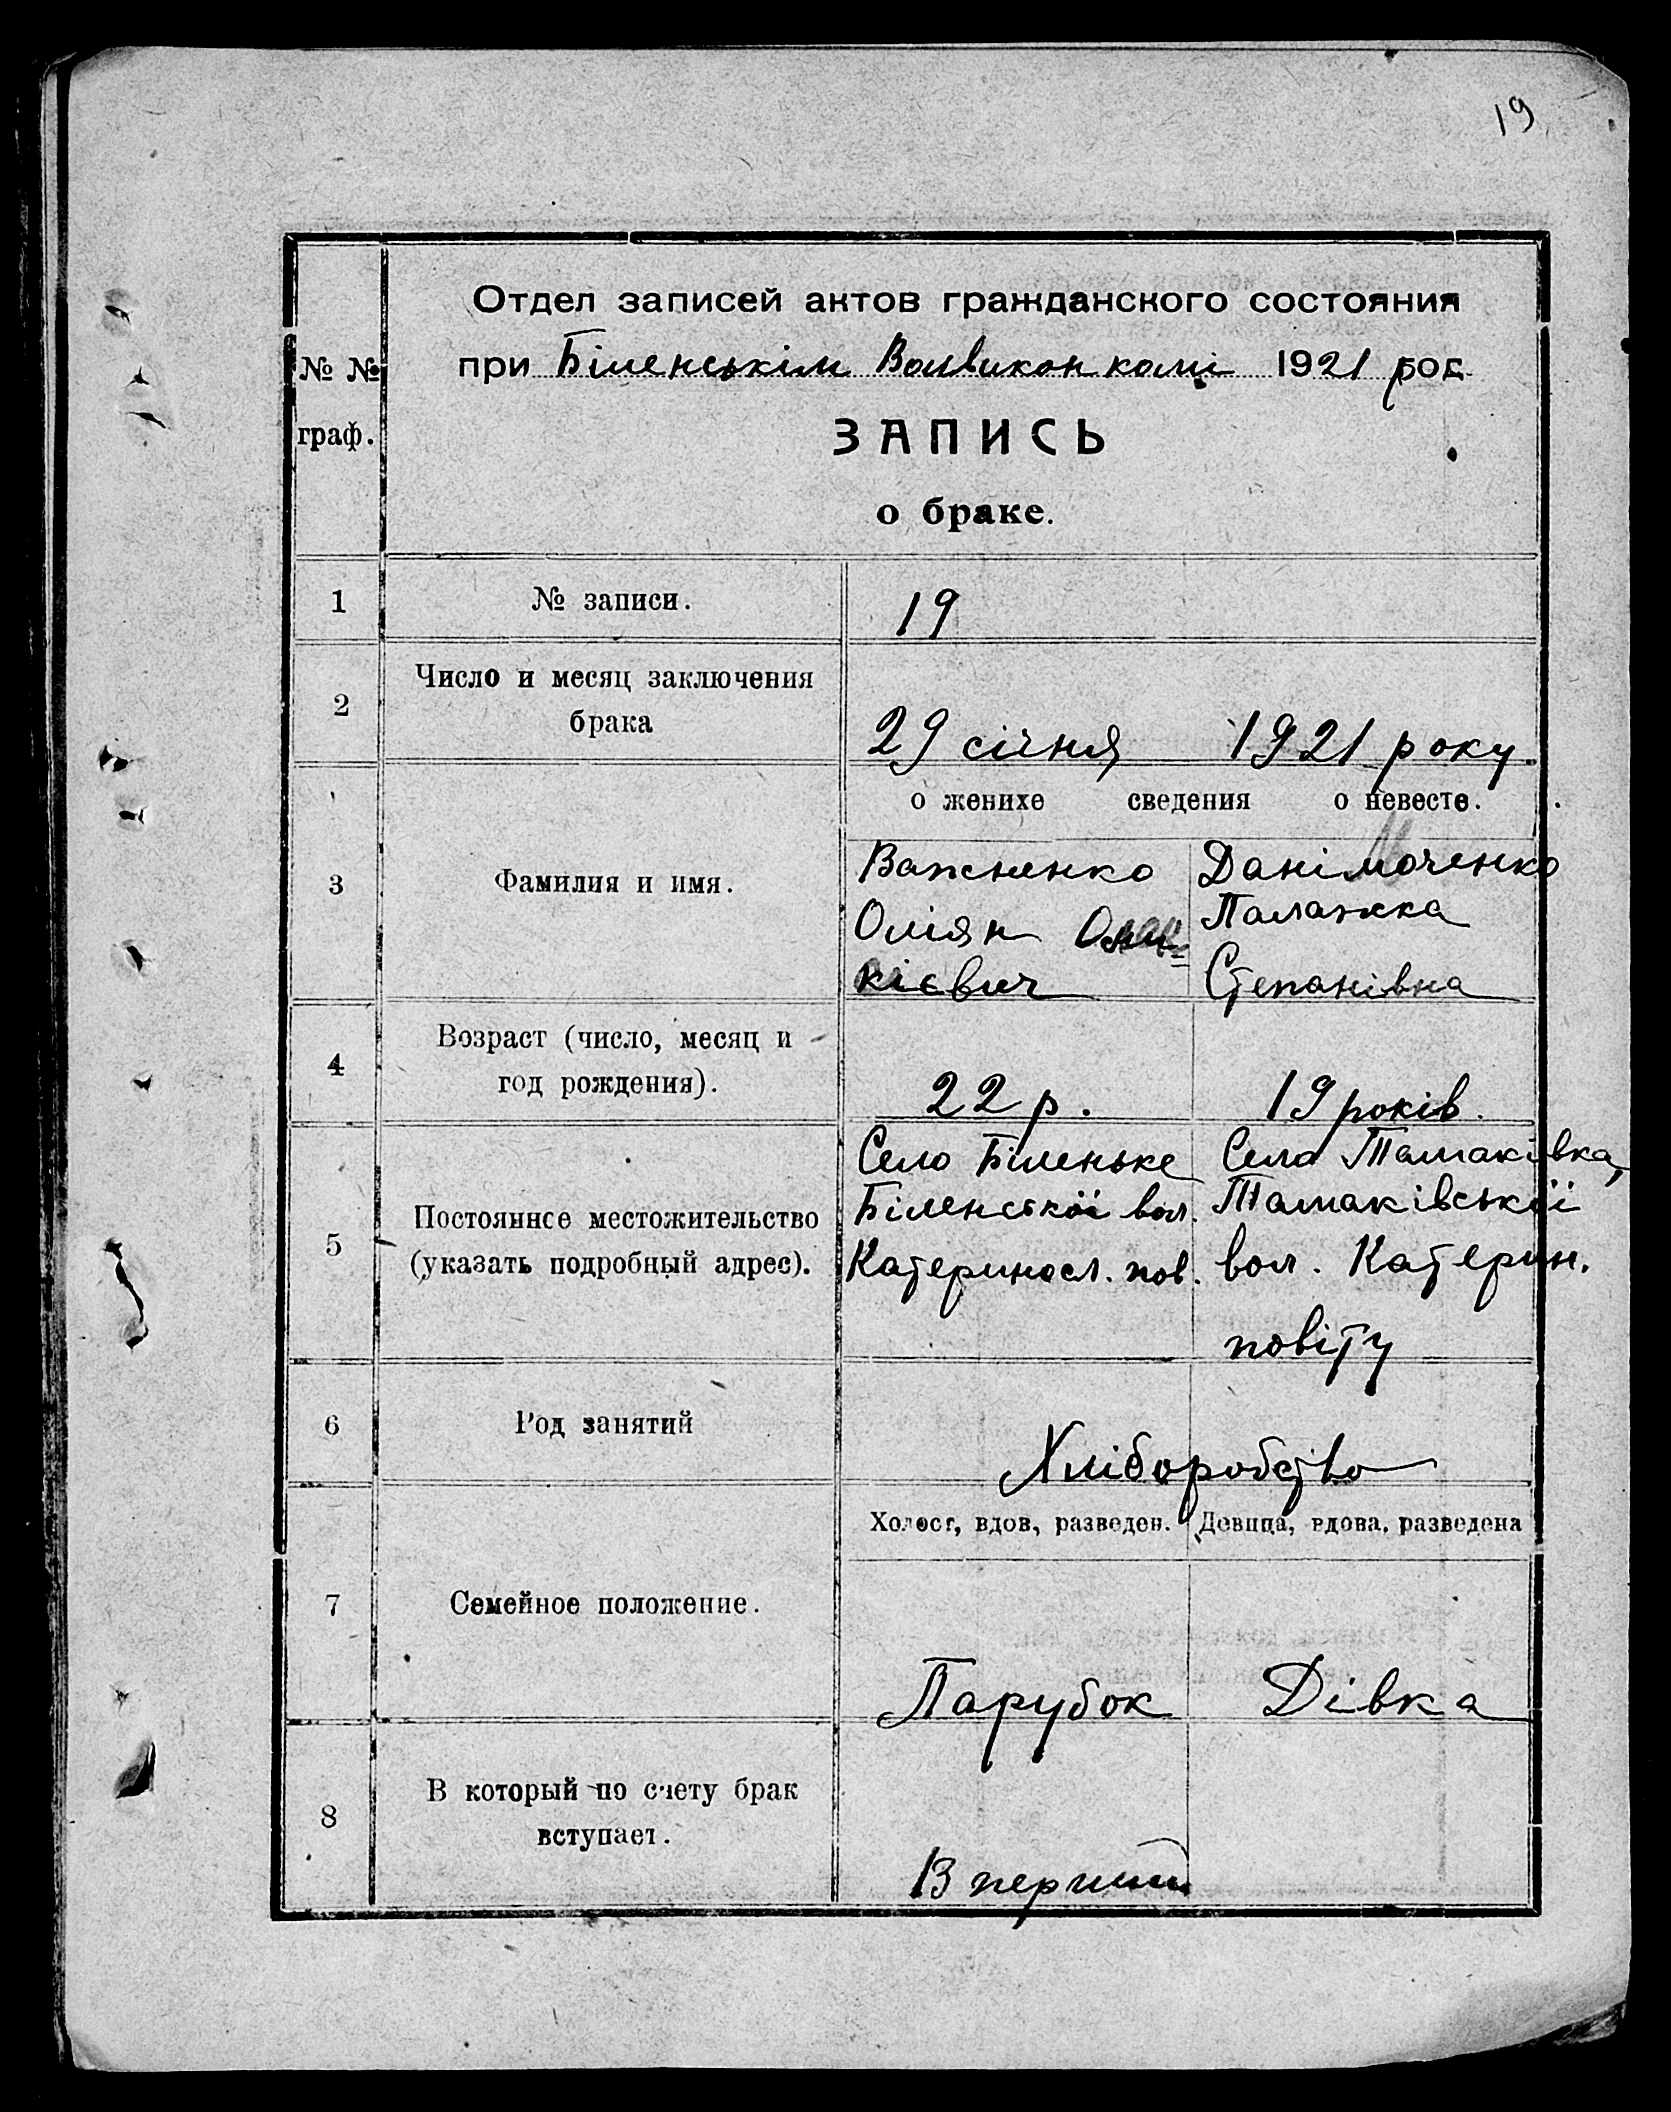 19
Отдел записей актов гражданского состояния
при Біленськім Волвиконкомі 1921 год
№ №
граф.
ЗАПИСЬ
о браке.
1 № записи. 19
2 Число и месяц заключения
брака
29 січня 1921 року.
о женихе сведения о невесте.
3 Фамилия и имя.
Важненко
Оліян
кієвич
Данімоченко
Палажка
Степанівна
4 Возраст (число, месяц и
год рождения).
22 р. 19 років.
5 Постоянное местожительство
(указать подробный адрес).
Село Біленьке
Біленської вол.
Катериносл. пов.
Село Томаківка,
Томаківської
вол. Катерин.
повіту
6 Род занятий Хліборобство
Холост, вдов, разведен. Девица, вдова, разведена
7 Семейное положение.
Парубок Дівка
8 В который по счету брак
вступает.
В перший